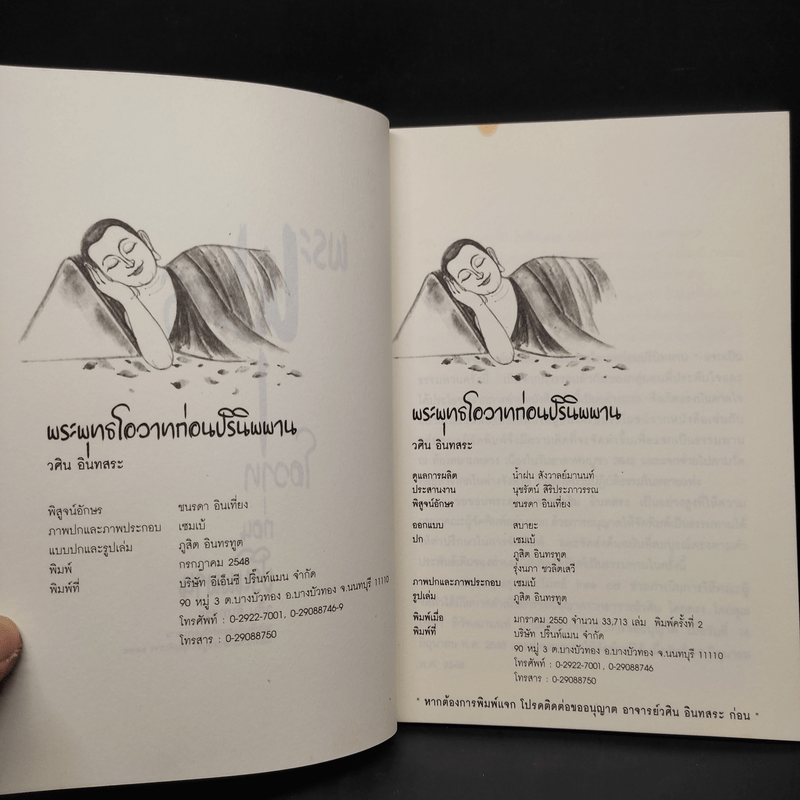 พระพุทธโอวาทก่อนปรินิพพาน
วศิน อินทสระ
พิสูจน์อักษร ชนรดา อินเที่ยง
ภาพปกและภาพประกอบ เซมเบ้
แบบปกและรูปเล่ม ภูสิต อินทรทูต
พิมพ์ กรกฎาคม 2548
พิมพ์ที่ บริษัท อีเอ็นซี ปริ๊นท์แมน จำกัด
90 หมู่ 3 ต.บางบัวทอง อ.บางบัวทอง จ.นนทบุรี 11110
โทรศัพท์ : 0-2922-7001, 0-29088746-9
โทรสาร : 0-29088750
พระพุทธโอวาทก่อนปรินิพพาน
วศิน อินทสระ
ดูแลการผลิต น้ำฝน สังวาลย์มานนท์
ประสานงาน นุชรัตน์ สิริประภาวรรณ
พิสูจน์อักษร ชนรดา อินเที่ยง
ออกแบบ สบายะ
ปก เซมเบ้
ภูสิต อินทรทูต
รุ่งนภา ชวลิตเสวี
ภาพปกและภาพประกอบ เซมเบ้
รูปเล่ม ภูสิต อินทรทูต
พิมพ์เมื่อ มกราคม 2550 จำนวน 33,713 เล่ม พิมพ์ครั้งที่ 2
พิมพ์ที่ บริษัท ปริ๊นท์แมน จำกัด
90 หมู่ 3 ต.บางบัวทอง อ.บางบัวทอง จ.นนทบุรี 11110
โทรศัพท์ : 0-2922-7001, 0-29088746
โทรสาร : 0-29088750
* หากต้องการพิมพ์แจก โปรดติดต่อขออนุญาต อาจารย์วศิน อินทสระ ก่อน *